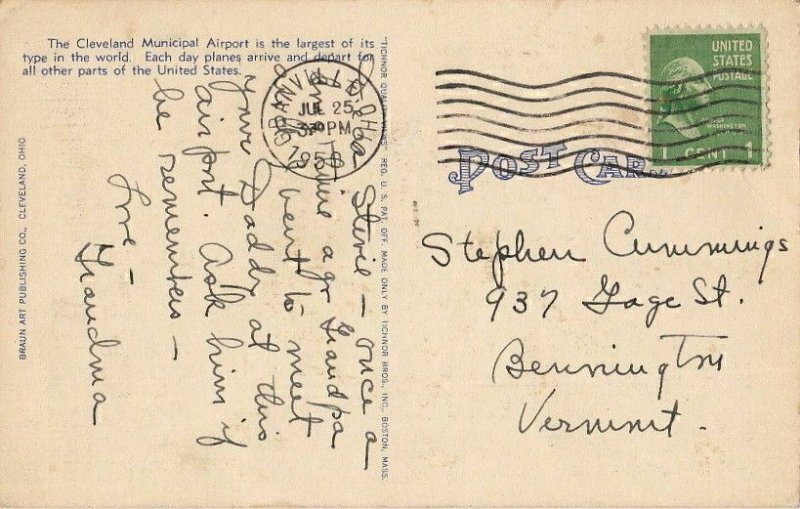 The Cleveland Municipal Airport is the largest of its
type in the world. Each day planes arrive and depart for
all other parts of the United States.
"TICHNOR QUALITY VIEWS" REG. U. S. PAT. OFF. MADE ONLY BY TICHNOR BROS., INC., BOSTON, MASS.
BRAUN ART PUBLISHING CO., CLEVELAND, OHIO
Dear Stevie — once a
time ago Grandpa
I went to meet
your Daddy at this
airport. Ask him if
he remembers —
Love —
Grandma
JUL 25
3 30 PM
195
OHIO
UNITED
STATES
POSTAGE
WASHINGTON
1 CENT 1
POST CARD
Stephen Cummings
937 Gage St.
Bennington
Vermont.